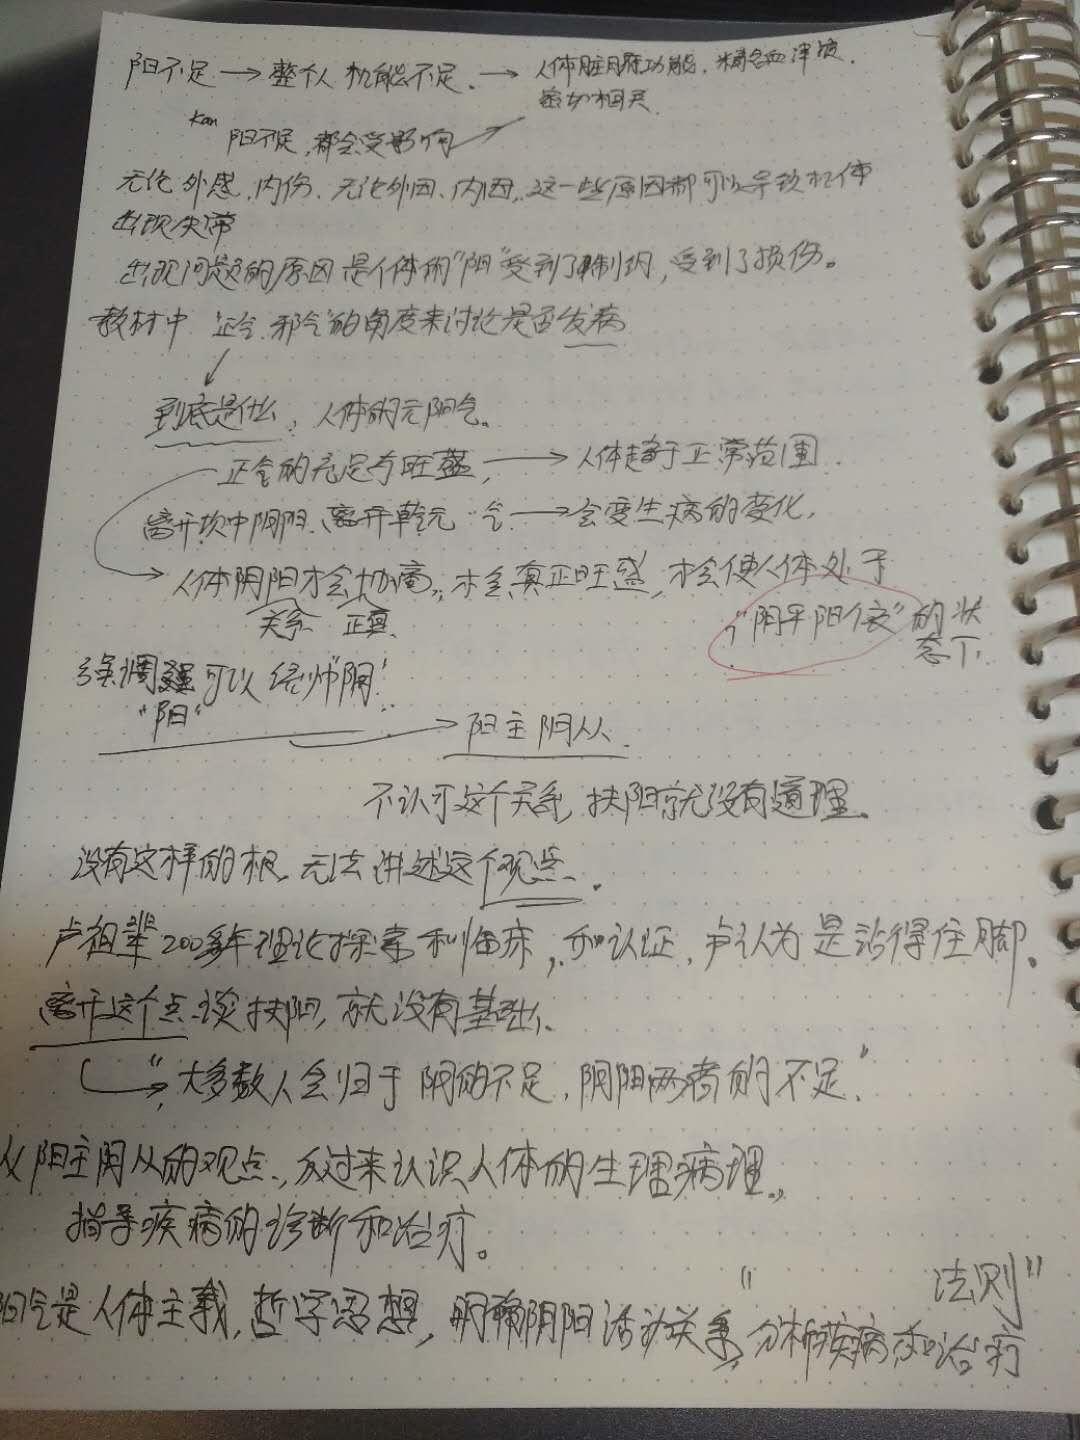 阳不足 → 整个人机能不足. → 人体脏腑功能. 精气血津液.
密切相关
阳不足, 都会受影响
无论外感、内伤、无论外因、内因, 这一些原因都可以导致机体
出现失常
出现问题的原因是人体的"阳"受到了制约, 受到了损伤。
教材中 正气.邪气的角度来讨论是否发病
到底是什么, 人体的元阳气。
正气的充足与旺盛, → 人体趋于正常范围.
离开坎中阴阳、离开乾元 气 → 会变生病的变化.
人体阴阳才会协调, 才会真正旺盛, 才会使人体处于
关系 正真
"阴平阳秘"的状
态下.
强调 可以统帅"阴"
"阳"
→ 阳主阴从.
不认可这个关系, 扶阳就没有道理.
没有这样的根, 无法讲述这个观点.
卢祖辈200多年理论探索和临床, 和认证, 卢认为是站得住脚.
离开这个点谈扶阳, 就没有基础.
"大多数人会归于阴的不足, 阴阳两者的不足."
从阳主阴从的观点, 反过来认识人体的生理病理,
指导疾病的诊断和治疗。
"法则"
阳气是人体主载, 哲学思想, 明确阴阳活动关系, 分析疾病和治疗